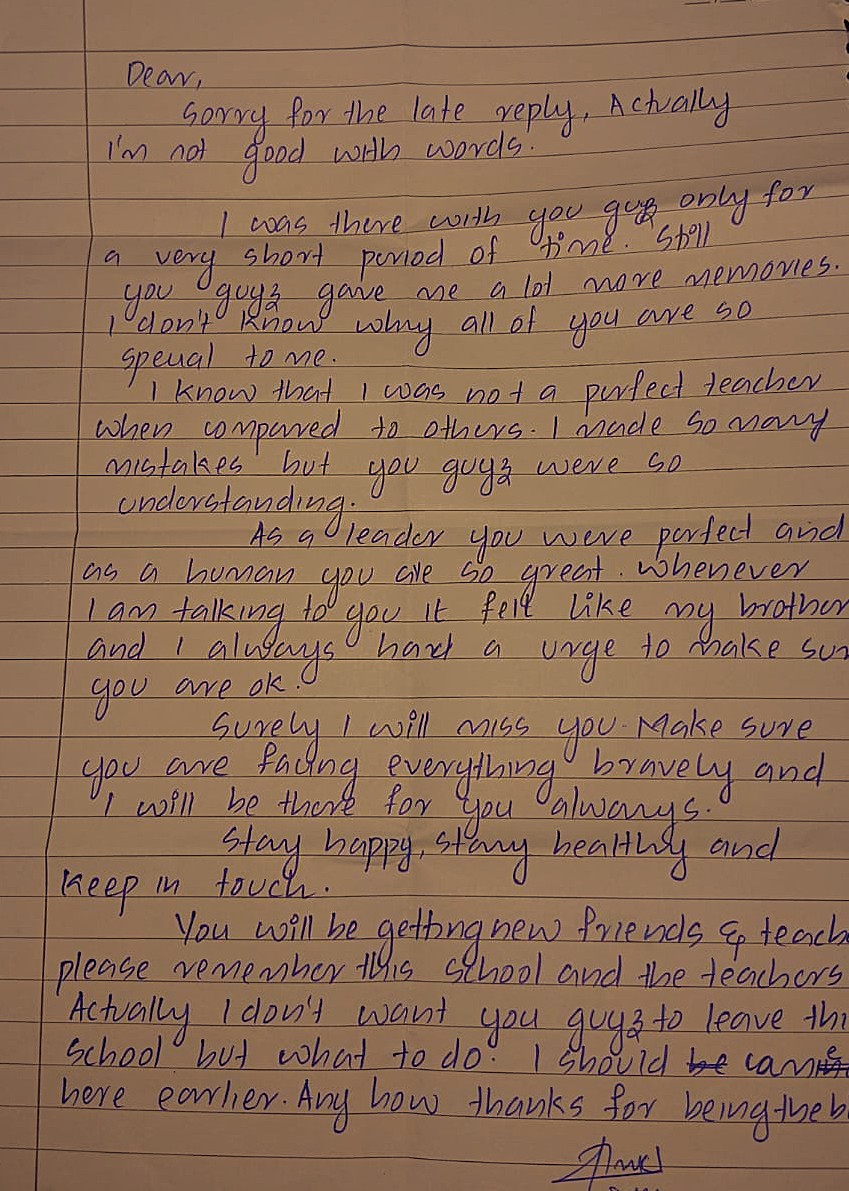 Dear,
Sorry for the late reply, Actually
I'm not good with words.
I was there with you guyz only for
a very short period of time. Still
you guyz gave me a lot more memories.
I don't know why all of you are so
special to me.
I know that I was not a perfect teacher
when compared to others. I made so many
mistakes but you guyz were so
understanding.
As a leader you were perfect and
as a human you are so great. Whenever
I am talking to you it felt like my brother
and I always had a urge to make sur
you are ok.
Surely I will miss you. Make sure
you are facing everything bravely and
I will be there for you always.
Stay happy, stay healthy and
keep in touch.
You will be getting new friends & teach
please remember this school and the teachers
Actually I don't want you guyz to leave thi
school but what to do. I should
here earlier. Any how thanks for being the b